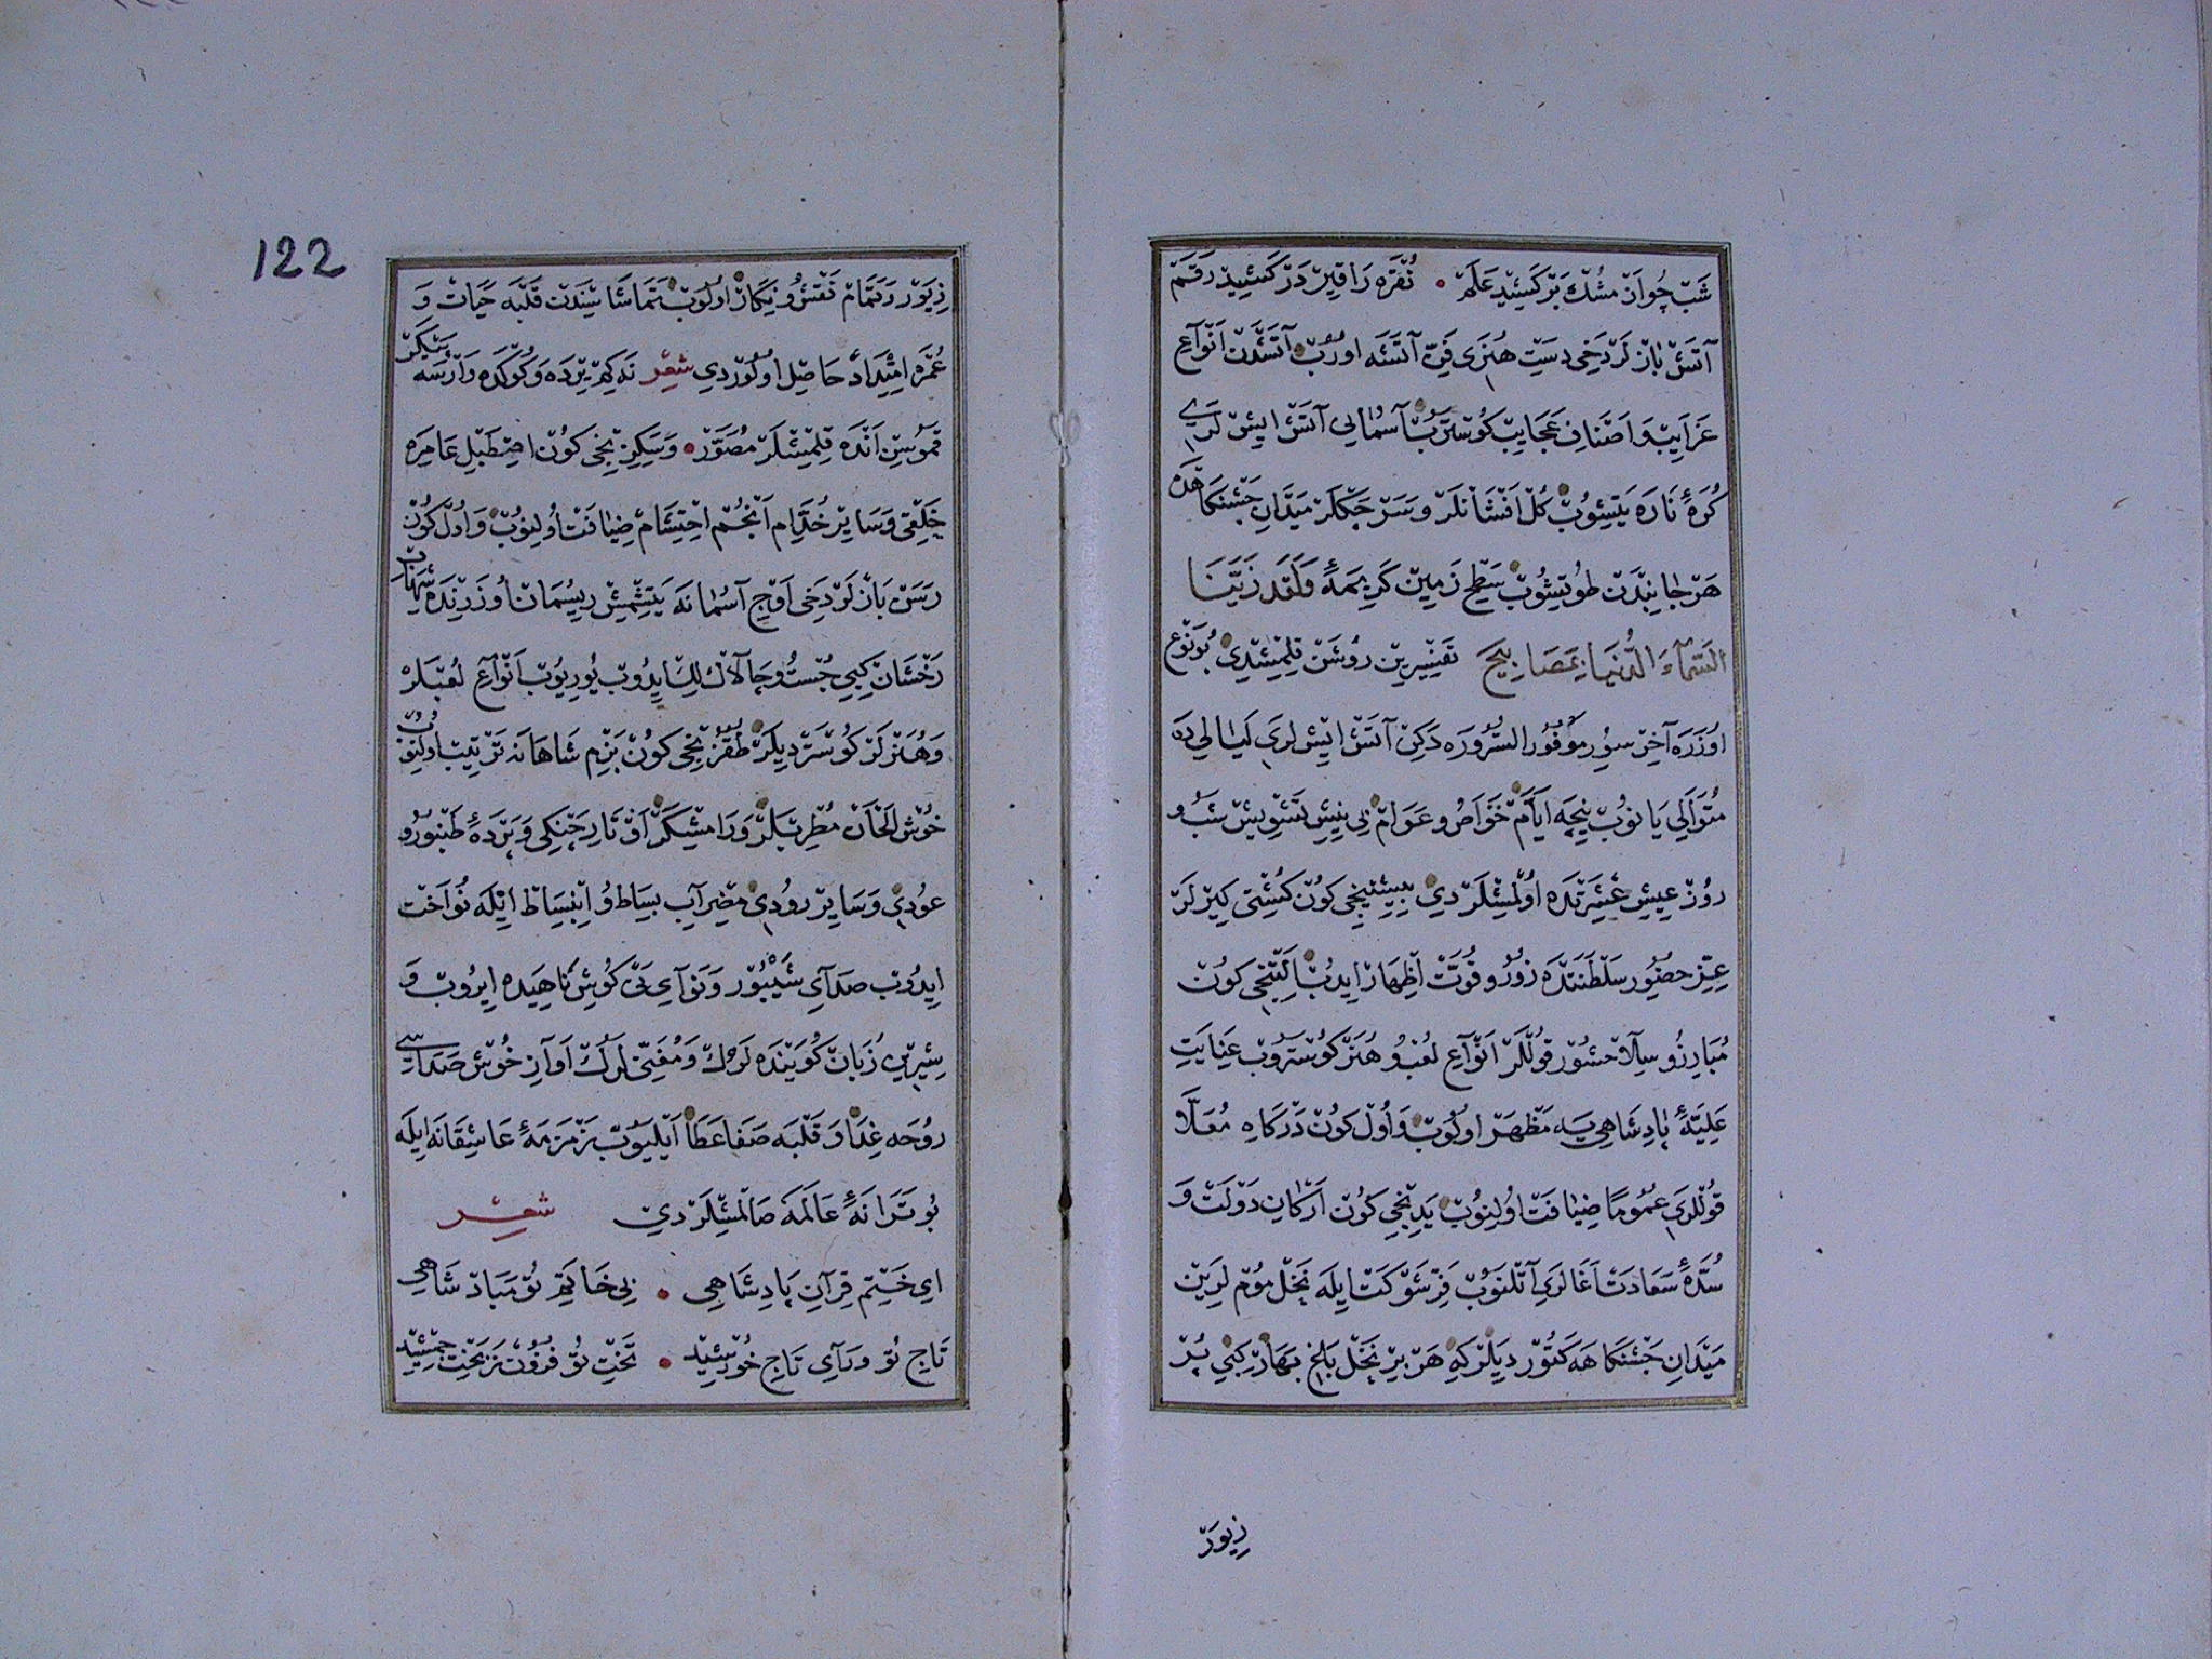 شَبْ چُوَانْ مُشْكْ بَرْكَشِيدْ عَلَمْ • نُقْرَه رَا قِيرْ دَرْ كَشِيدْ رَقَمْ
آتَشْ بَازْلَرْ دَخِى دَسْتِ هُنَرِى فَنِّ آتَشَه اُورُبْ آتَشْدَنْ اَنْوَاعِ
غَرَايِبْ وَ اَصْنَافِ عَجَايِبْ كُوسْتَرُبْ آسُمَانِى آتَشْ اِيشْلَرِى
كُرَهٔ نَارَه يَتِشُوبْ كُلْ اَفْشَانْلَرْ وَ سَرْ جَنْكْلَرْ مَيْدَانِ جَشْنكَاهْدَه
هَرْ جَانِبْدَنْ طُوتِشُوبْ سَطْحِ زَمِينْ كَرِيمَهٔ وَلَقَدْ زَيَّنَّا
السَّمَآءَ الدُّنْيَا بِمَصَابِيحَ تَفْسِيرِينْ رُوشَنْ قِلْمِشْدِى بُو نَوْعْ
اُوزَرَه آخِرِ سُورِ مَوْفُورُ السُّرُورَه دَكِنْ آتَشْ اِيشْلَرِى لَيَالِيدَه
مُتَوَالِى يَانُوبْ نِيچَه اَيَّامْ خَوَاصُ و عَوَامْ بِى نِيشِ تَشْوِيشْ شَبُ و
رُوزْ عِيشِ عِشْرَتْدَه اُولْمِشْلَرْدِى بِشِنْجِى كُونْ كُشْتِى كِيرْلَرْ
عِزِّ حُضُورِ سَلْطَنَتْدَه زُورُ و قُوَّتْ اِظْهَارْ اِيدُبْ اَلْتِنْجِى كُونْ
مُبَارِزُ و سِلَاحْشُورْ قُوللَّرْ اَنْوَاعِ لُعْبُ و هُنَرْ كُوسْتَرُوبْ عِنَايَتِ
عَلِيَّهٔ پَادِشَاهِى يَه مَظْهَرْ اُولُوبْ وَ اُولْ كُونْ دَرْكَاهِ مُعَلَّا
قُوللَّرِى عُمُومًا ضِيَافَتْ اُولِنُوبْ يَدِنْجِى كُونْ اَرْكَانِ دَوْلَتْ وَ
سُدَّهٔ سَعَادَتْ اَغَالَرِى آتْلَنُوبْ فَرِّ شَوْكَتْ اِيلَه نَخْلِ مُومْلَرِينْ
مَيْدَانِ جَشْنكَاهَه كَتُورْدِيلَرْ كَه هَرْ بِرْ نَخْلْ بَاغِ بَهَارْ كِبِى پُرْ
زِيوَرْ
122
زِيوَرْ وَ تَمَامْ نَقْشُ و نِكَارْ اُولُوبْ تَمَاشَاسِنْدَنْ قَلْبَه حَيَاتْ وَ
عُمْرَه اِمْتِدَادْ حَاصِلْ اُولُورْدِى شعر نَه كِمْ يِرْدَه وَ كُوكْدَه وَارْسَه پَيْكَرْ
قَمُوسِنْ اَنْدَه قِلْمِشْلَرْ مُصَوَّرْ • وَ سَكِزِنْجِى كُونْ اِصْطَبْلِ عَامِرَه
خَلْقِى وَ سَايِرْ خُدَّامِ اَنْجُمْ اِحْتِشَامْ ضِيَافَتْ اُولِنُوبْ وَ اُولْ كُونْ
رَسَنْ بَازْلَرْ دَخِى اَوْجِ آسُمَانَه يَتِشْمِشْ رِيسُمَانْ اُوزَرِنْدَه شِهَابِ
رَخْشَانْ كِبِى جُسْتُ و چَالَاكْلِكْ اِيدُوبْ يُورِيُوبْ اَنْوَاعِ لُعْبَلَرْ
وَ هُنَرْلَرْ كُوسْتَرْدِيلَرْ طُقُزِنْجِى كُونْ بَزْمِ شَاهَانَه تَرْتِيبْ اُولِنُوبْ
خُوشْ اَلْحَانْ مُطْرِبْلَرْ وَ رَامِشْكَرْ اَوْتَارِ چَنْكِى وَ پَرْدَهٔ طَنْبُورُ و
عُودِى وَ سَايِرْ رُودِى مِضْرَابِ بَسَاطُ و اِنْبِسَاطْ اِيلَه نُوَاخْتْ
اِيدُوبْ صَدَاىِ شَيْپُورْ وَ نَوَاىِ نَىْ كُوشِ نَاهِيدَه اِيرُوبْ وَ
شِيرِينْ زُبَانْ كُويَنْدَه لَرُكْ وَ مُغَنِّيلَرُكْ آوَازِ خُوشْ صَدَاسِى
رُوحَه غِدَا وَ قَلْبَه صَفَا عَطَا اَيْلَيُوبْ زَمْزَمَهٔ عَاشِقَانَه اِيلَه
بُو تَرَانَهٔ عَالَمَه صَالْمِشْلَرْدِى شعر
اى خَتْمِ قِرَانِ پَادِشَاهِى • بِى خَاتَمِ تُو مَبَادْ شَاهِى
تَاجِ تُو وَرَاىِ تَاجِ خُورْشِيدْ • تَخْتِ تُو فُزُونْ زِ تَخْتِ جَمْشِيدْ